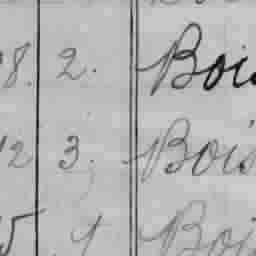 8. 2. Bois
12 3. Bois
5 1 Bois